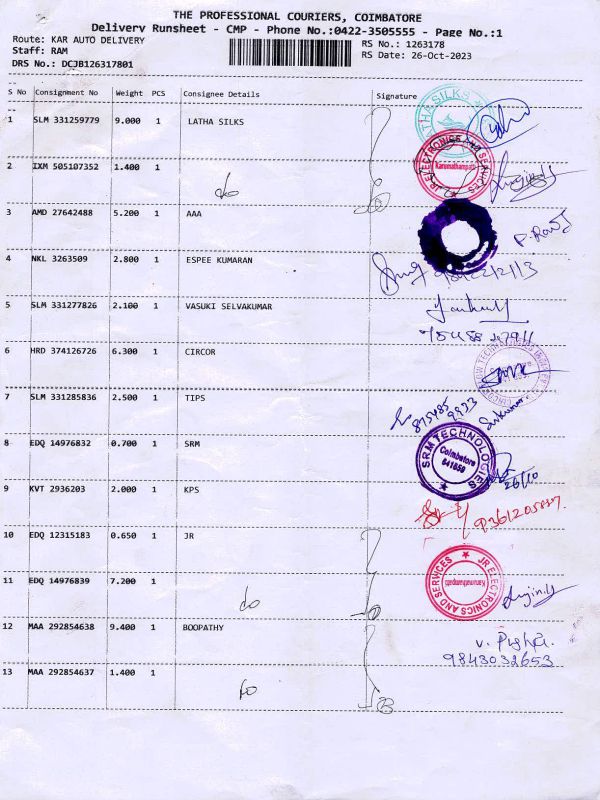 THE PROFESSIONAL COURIERS, COIMBATORE
Delivery Runsheet - CMP - Phone No.:0422-3505555 - Page No.:1
Route: KAR AUTO DELIVERY
RS No.: 1263178
Staff: RAM
RS Date: 26-Oct-2023
DRS No.: DCJB126317801
S No Consignment No Weight PCS Consignee Details Signature
1 SLM 331259779 9.000 1 LATHA SILKS
LATHA SILKS
2 IXM 505107352 1.400 1 do
JR ELECTRONICS AND SERVICES
3 AMD 27642488 5.200 1 AAA
4 NKL 3263509 2.800 1 ESPEE KUMARAN
5 SLM 331277826 2.100 1 VASUKI SELVAKUMAR
6 HRD 374126726 6.300 1 CIRCOR
7 SLM 331285836 2.500 1 TIPS
8 EDQ 14976832 0.700 1 SRM
SRM TECHNOLOGIES
Coimbatore
641659
26/10
9 KVT 2936203 2.000 1 KPS
10 EDQ 12315183 0.650 1 JR
11 EDQ 14976839 7.200 1 do
JR ELECTRONICS AND SERVICES
12 MAA 292854638 9.400 1 BOOPATHY
9843032653
13 MAA 292854637 1.400 1 do